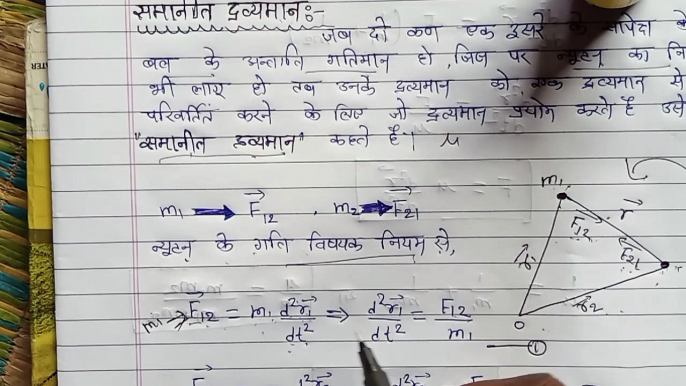 समानीत द्रव्यमान:-
जब दो कण एक दूसरे के सापेक्ष के
बल के अन्तर्गत गतिमान हो, जिस पर न्यूटन का नि
भी लागू हो तब उनके द्रव्यमान को, एक द्रव्यमान से
परिवर्तित करने के लिए जो द्रव्यमान प्रयोग करते है उसे
"समानीत द्रव्यमान" कहते है। μ
m₁ → F₁₂ , m₂ → F₂₁
न्यूटन के गति विषयक नियम से,
m₁ → F₁₂ = m₁ d²r₁/dt² ⇒ d²r₁/dt² = F₁₂/m₁ —①
m₁
r
F₁₂
F₂₁
r₁
r₂
O